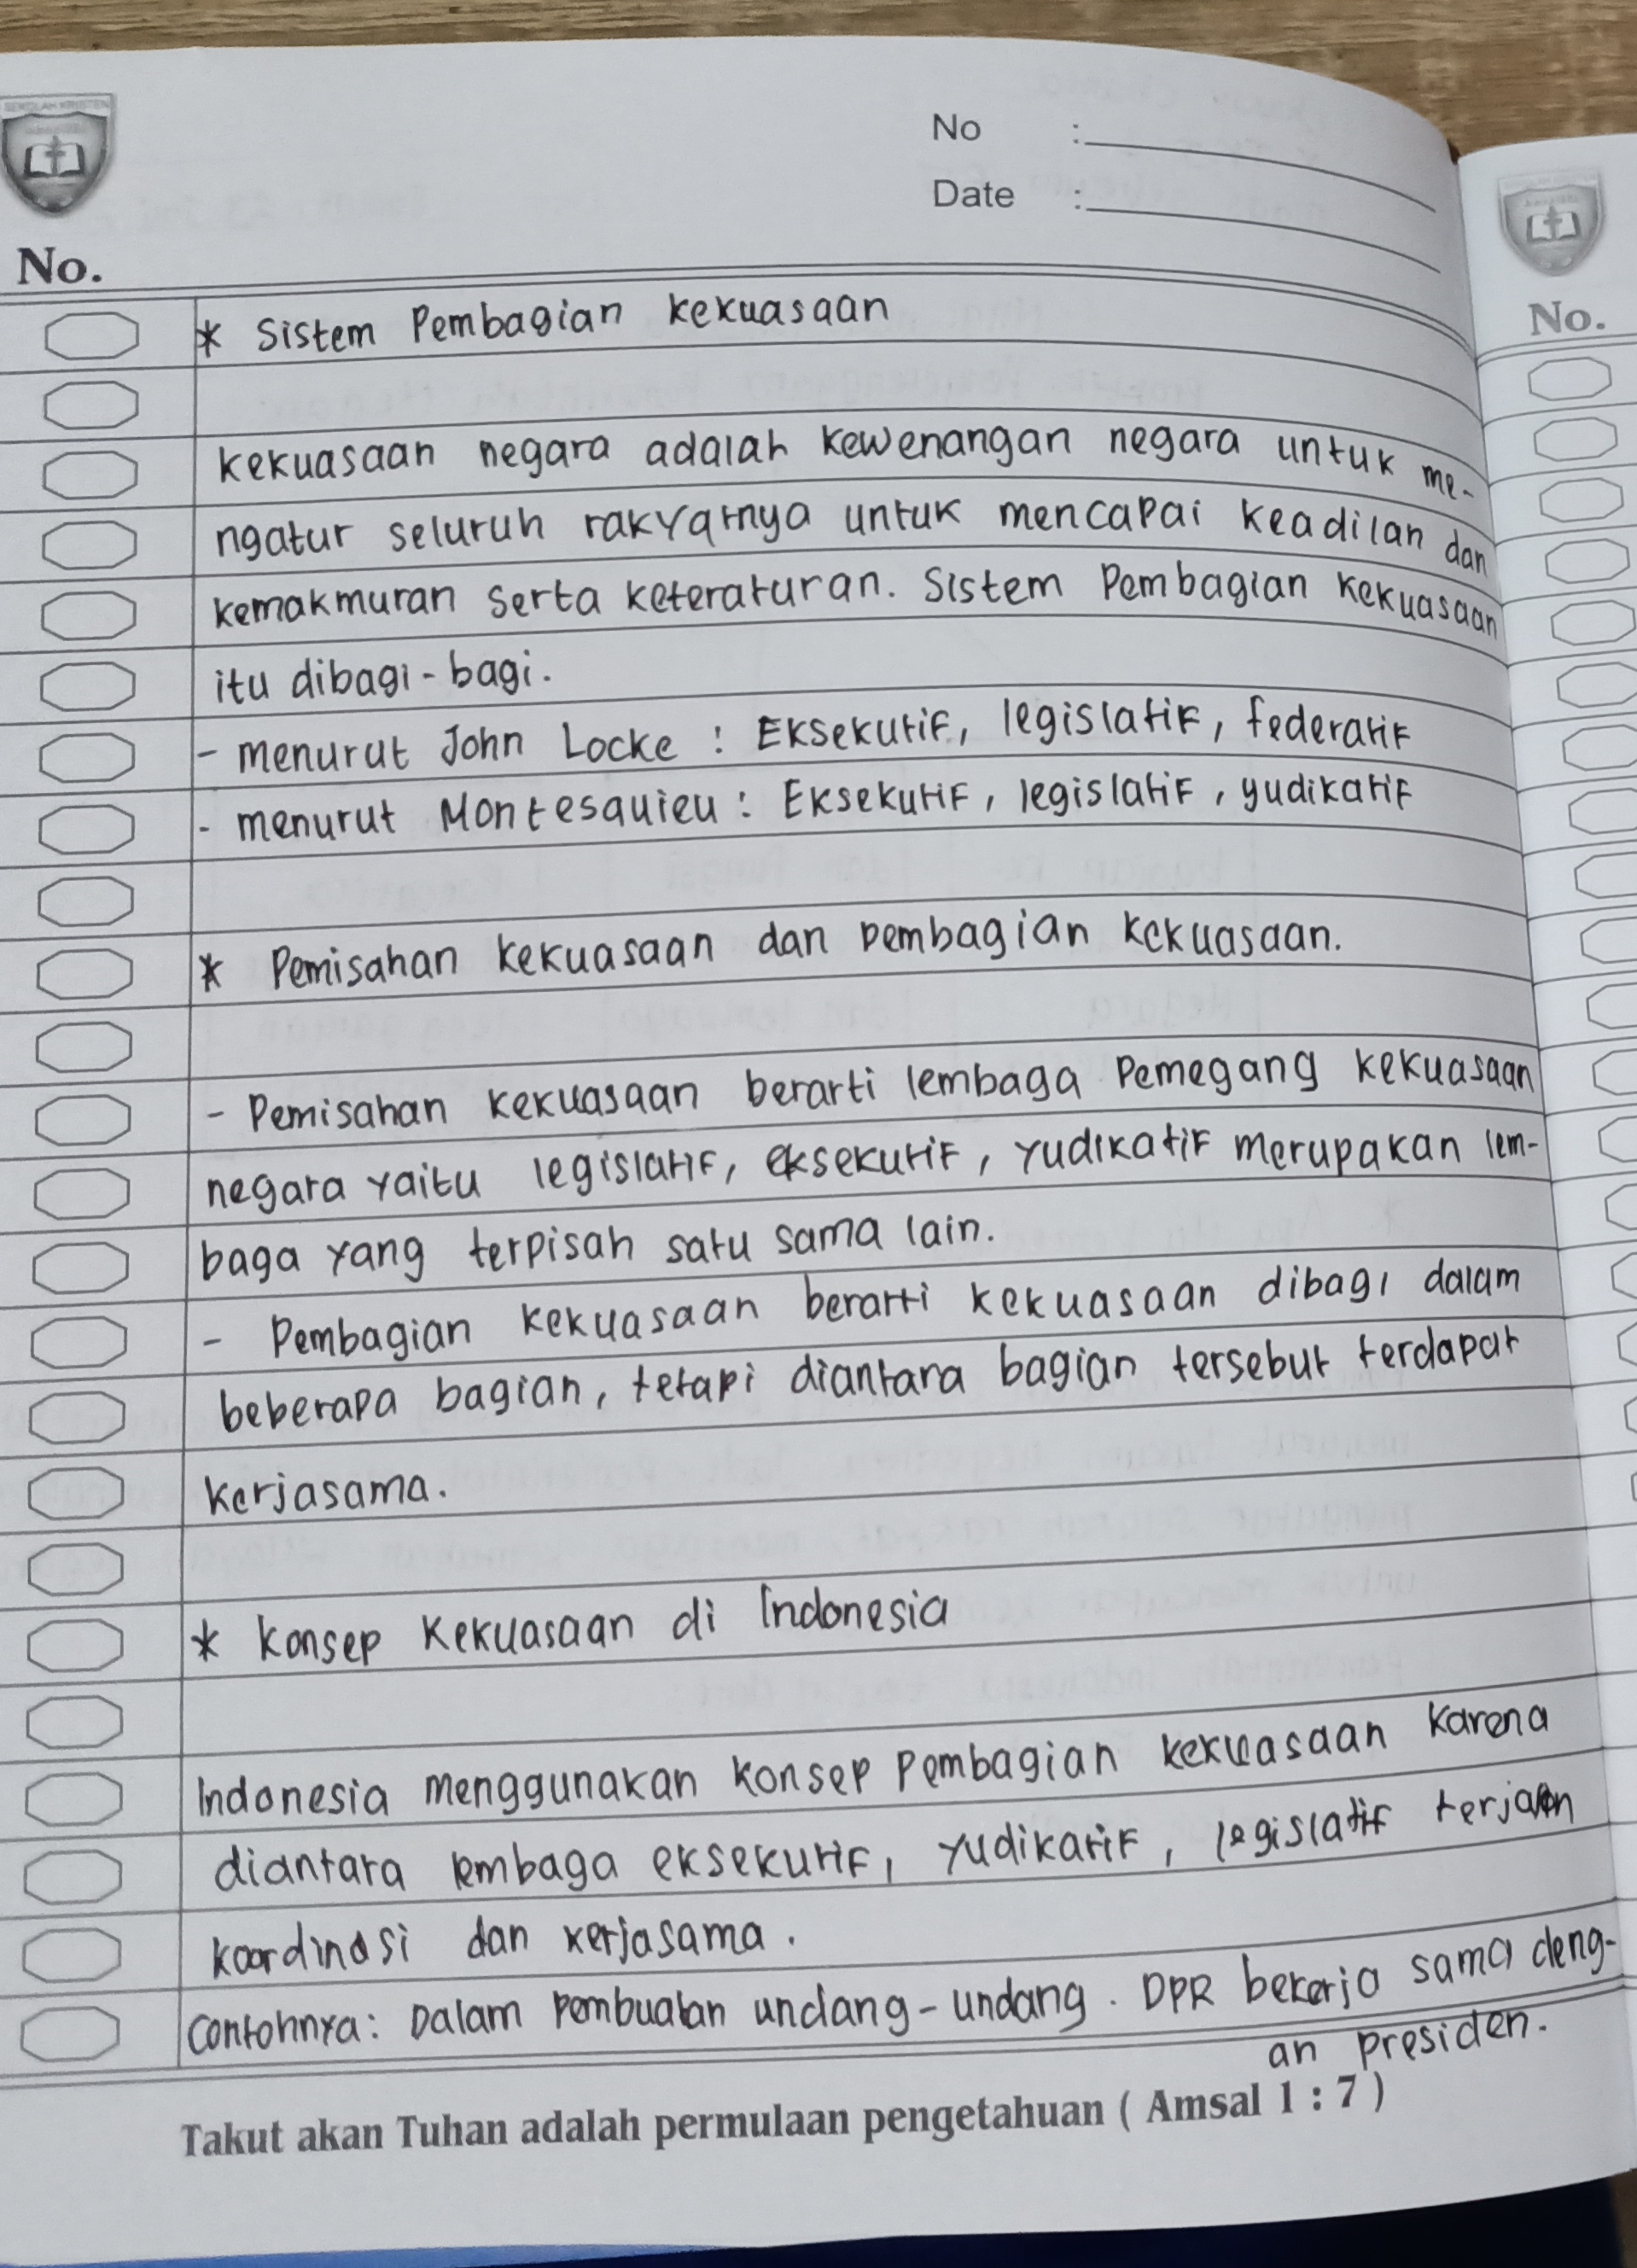 SEKOLAH KRISTEN
No :
Date :
No.
No.
* Sistem Pembagian kekuasaan
kekuasaan negara adalah kewenangan negara untuk me-
ngatur seluruh rakyatnya untuk mencapai keadilan dan
kemakmuran serta keteraturan. Sistem Pembagian kekuasaan
itu dibagi-bagi.
- menurut John Locke : Eksekutif, legislatif, federatif
- menurut Montesquieu : Eksekutif, legislatif, yudikatif
* Pemisahan kekuasaan dan pembagian kekuasaan.
- Pemisahan kekuasaan berarti lembaga Pemegang kekuasaan
negara yaitu legislatif, eksekutif, yudikatif merupakan lem-
baga yang terpisah satu sama lain.
- Pembagian kekuasaan berarti kekuasaan dibagi dalam
beberapa bagian, tetapi diantara bagian tersebut terdapat
kerjasama.
* Konsep Kekuasaan di Indonesia
Indonesia menggunakan konsep pembagian kekuasaan karena
diantara lembaga eksekutif, yudikatif, legislatif terjalin
koordinasi dan kerjasama.
Contohnya: Dalam pembuatan undang-undang. DPR bekerja sama deng-
an presiden.
Takut akan Tuhan adalah permulaan pengetahuan ( Amsal 1 : 7 )